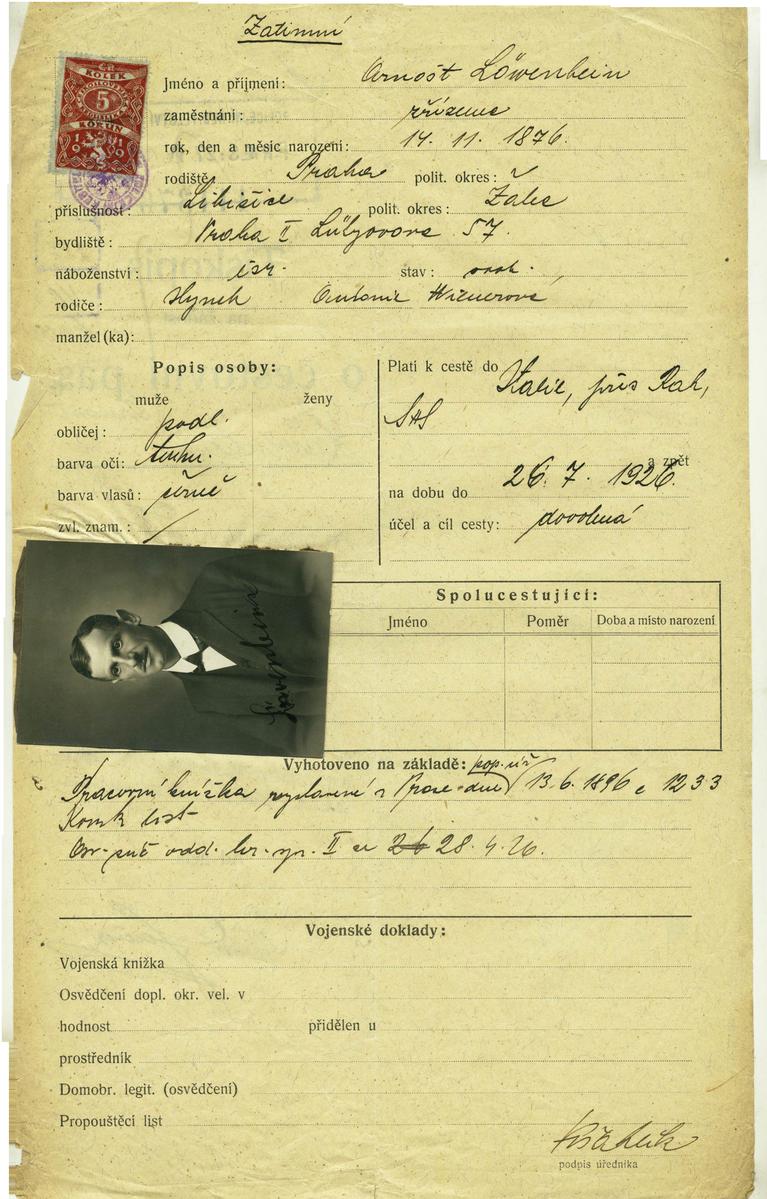 Zatímní
KOLEK
5
KORUN
1919
Jméno a příjmení: Arnošt Löwenbein
zaměstnání: zřízenec
rok, den a měsíc narození: 14. 11. 1876.
rodiště Praha polit. okres: č
příslušnost: Libišice polit. okres: Žatec
bydliště: Praha II Lützovova 57.
náboženství: isr. stav: svob.
rodiče: Hynek Antonie Wienerová
manžel (ka):
Popis osoby:
muže ženy
obličej: podl.
barva očí: tmav.
barva vlasů: černé
zvl. znam.: /
Platí k cestě do Italie, přes Rak,
SHS
a zpět
na dobu do 26. 7. 1926.
účel a cíl cesty: dovolená
Löwenbein
Spolucestující:
Jméno Poměr Doba a místo narození
Vyhotoveno na základě: pop. úř
Pracovní knížka vydané v Praze dne 13. 6. 1896 č 1233
Konsk list
28. 4. 26.
Vojenské doklady:
Vojenská knížka
Osvědčení dopl. okr. vel. v
hodnost přidělen u
prostředník
Domobr. legit. (osvědčení)
Propouštěcí list
podpis úředníka